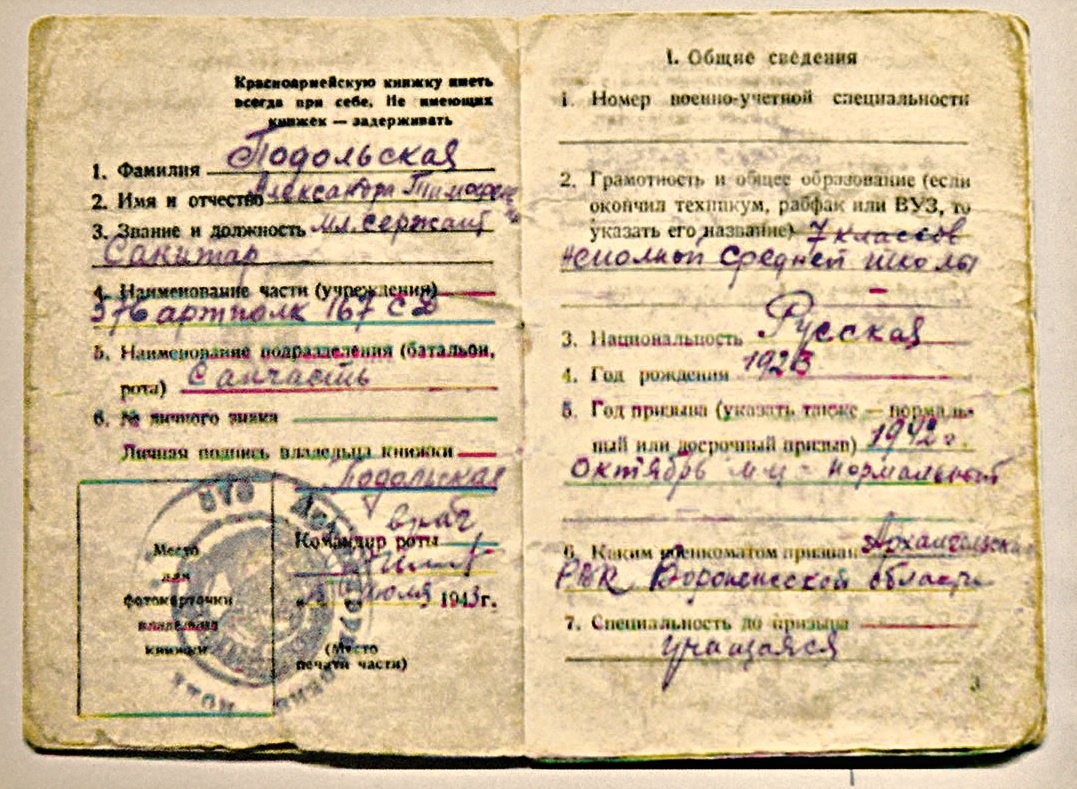 Красноармейскую книжку иметь
всегда при себе. Не имеющих
книжек — задерживать
1. Фамилия Подольская
2. Имя и отчество Александра Тимофеевна
3. Звание и должность мл. сержант
Санитар
4. Наименование части (учреждения)
576 артполк 167 СД
5. Наименование подразделения (батальон,
рота) Санчасть
6. № личного знака
Личная подпись владельца книжки
Подольская
врач
Командир роты
Место
для
фотокарточки
владельца
книжки
июля 1943г.
(Место
печати части)
I. Общие сведения
1. Номер военно-учетной специальности
2. Грамотность и общее образование (если
окончил техникум, рабфак или ВУЗ, то
указать его название) 7 классов
неполной средней школы
3. Национальность Русская
4. Год рождения 1923
5. Год призыва (указать также — нормаль-
ный или досрочный призыв) 1942 г.
Октябрь м-ц - нормальный
6. Каким военкоматом призван Архангельским
РВК Воронежской области
7. Специальность до призыва
учащаяся
3